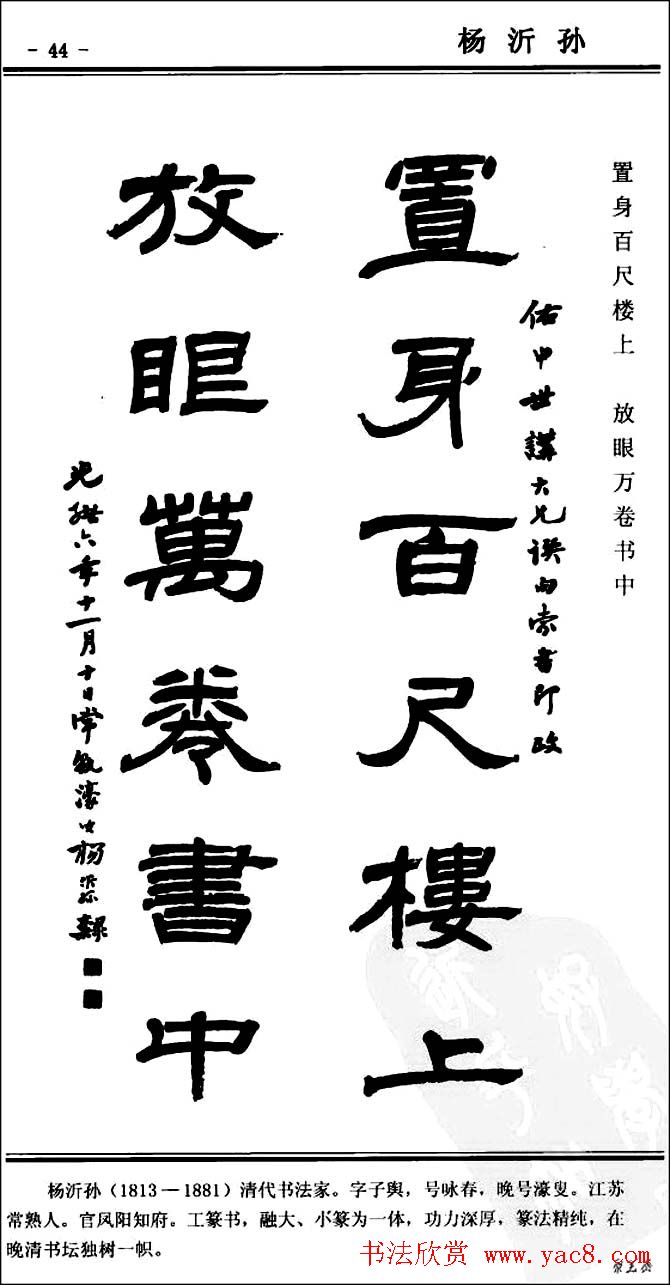 - 44 -
杨沂孙
置身百尺楼上 放眼万卷书中
佑中世講大兄誤由索書即政
置身百尺樓上
放眼萬卷書中
光緒六年十一月十日常熟濠叟楊沂孫隸
杨沂孙(1813—1881)清代书法家。字子舆,号咏春,晚号濠叟。江苏
常熟人。官凤阳知府。工篆书,融大、小篆为一体,功力深厚,篆法精纯,在
晚清书坛独树一帜。
书法欣赏 www.yac8.com